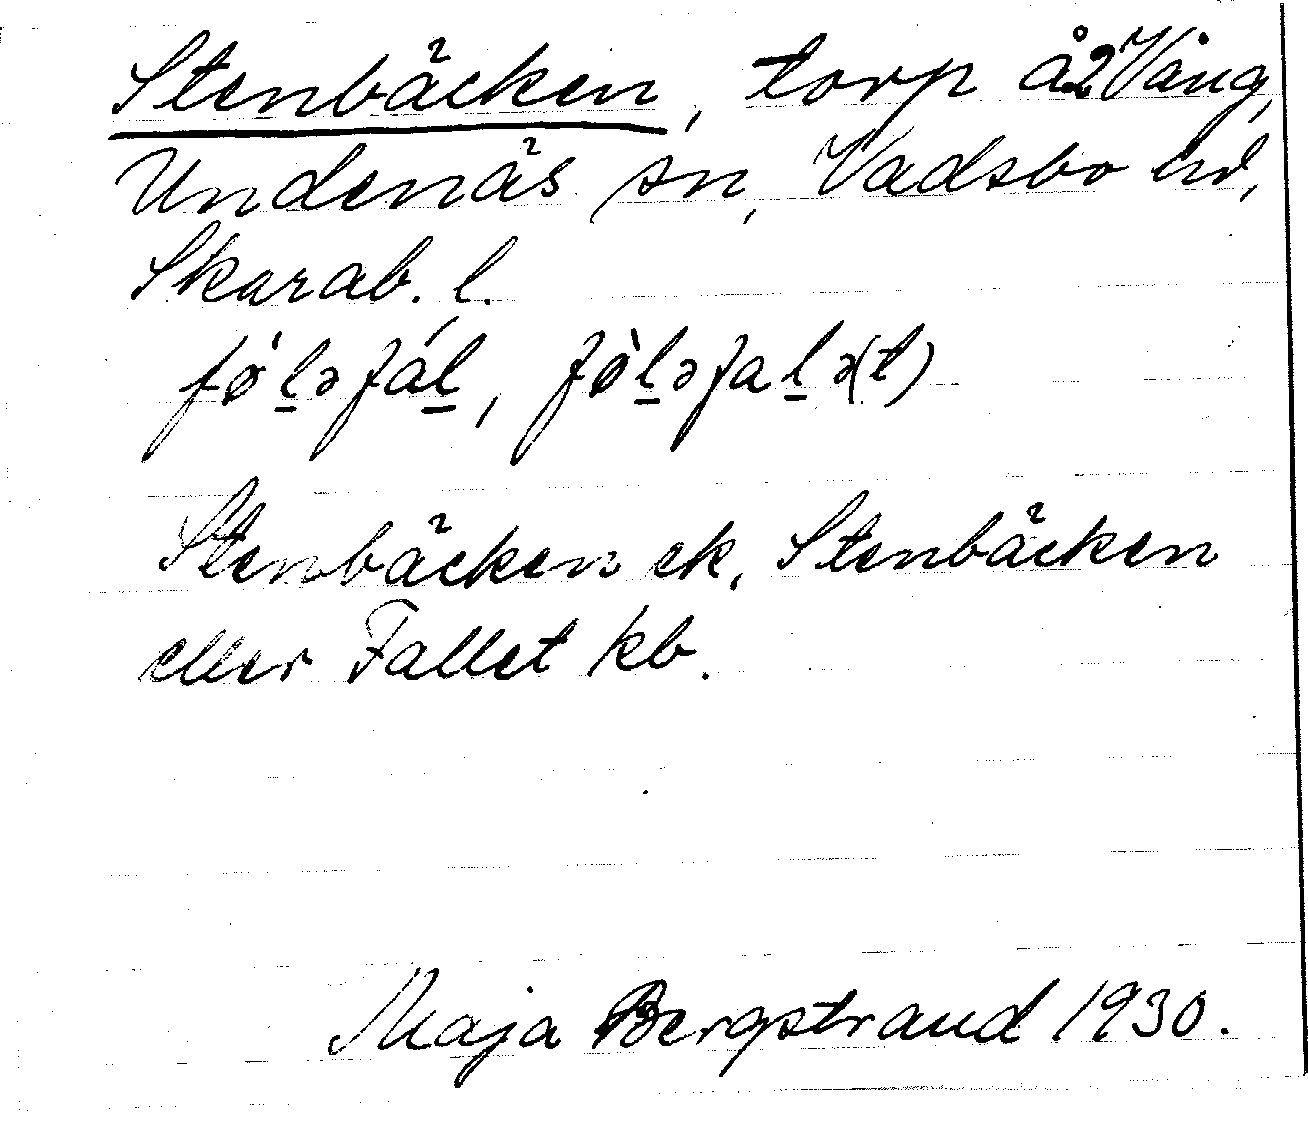 Stenbäcken, torp å 2 Vång,
Undenäs sn, Vadsbo hd,
Skarab. l.
fø̀l̲əfál̲, fø̀l̲əfal̲ə(t)
Stenbäcken ek, Stenbäcken
eller Fallet kb.
Maja Bergstrand 1930.